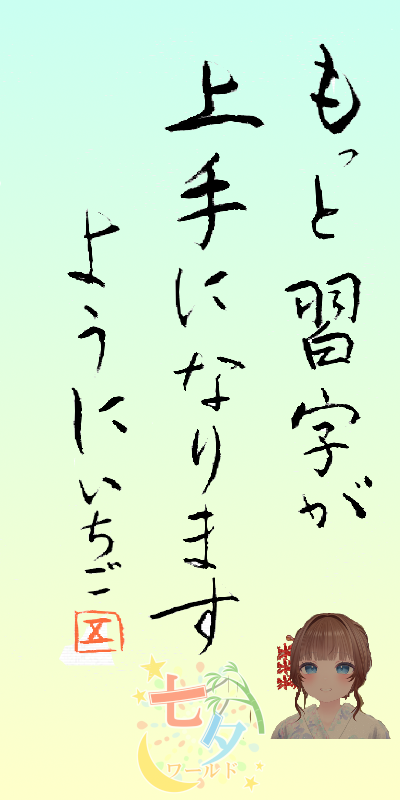 もっと習字が
上手になります
ようにいちご
五
七夕
ワールド